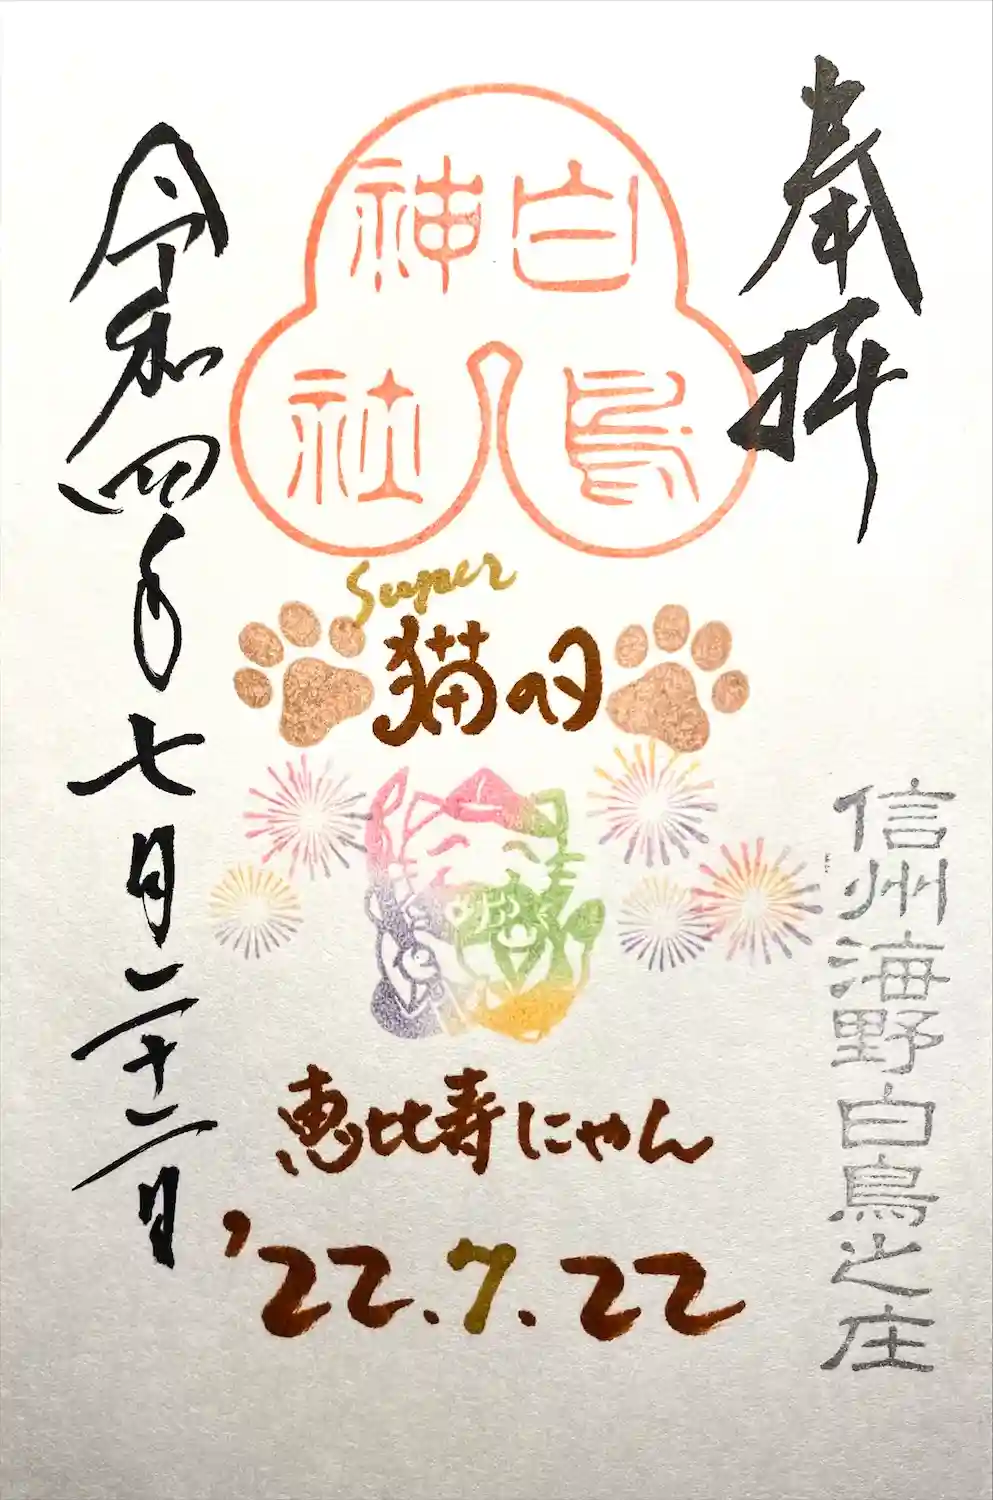 奉拝
白鳥
神社
Super
猫の日
恵比寿にゃん
'22.7.22
信州海野白鳥之庄
令和四年七月二十二日